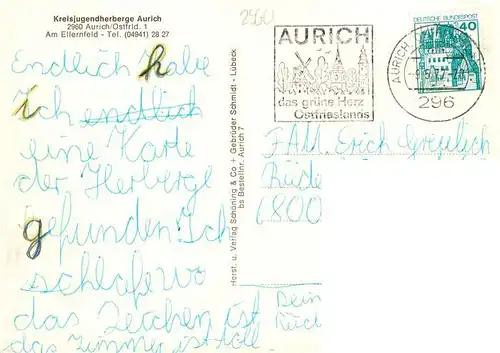 Kreisjugendherberge Aurich
2960 Aurich/Ostfrld. 1
Am Ellernfeld - Tel. (04941) 28 27
Endlich habe
ich endlich
eine Karte
der Herberge
gefunden Ich
schlafe wo
das Zeichen ist
das Zimmer ist toll
Horst. u. Verlag Schöning & Co + Gebrüder Schmidt - Lübeck
bs Bestellnr. Aurich 7
AURICH
das grüne Herz
Ostfrieslands
DEUTSCHE BUNDESPOST
40
AURICH
296
FAM. Erich
6800
Dein